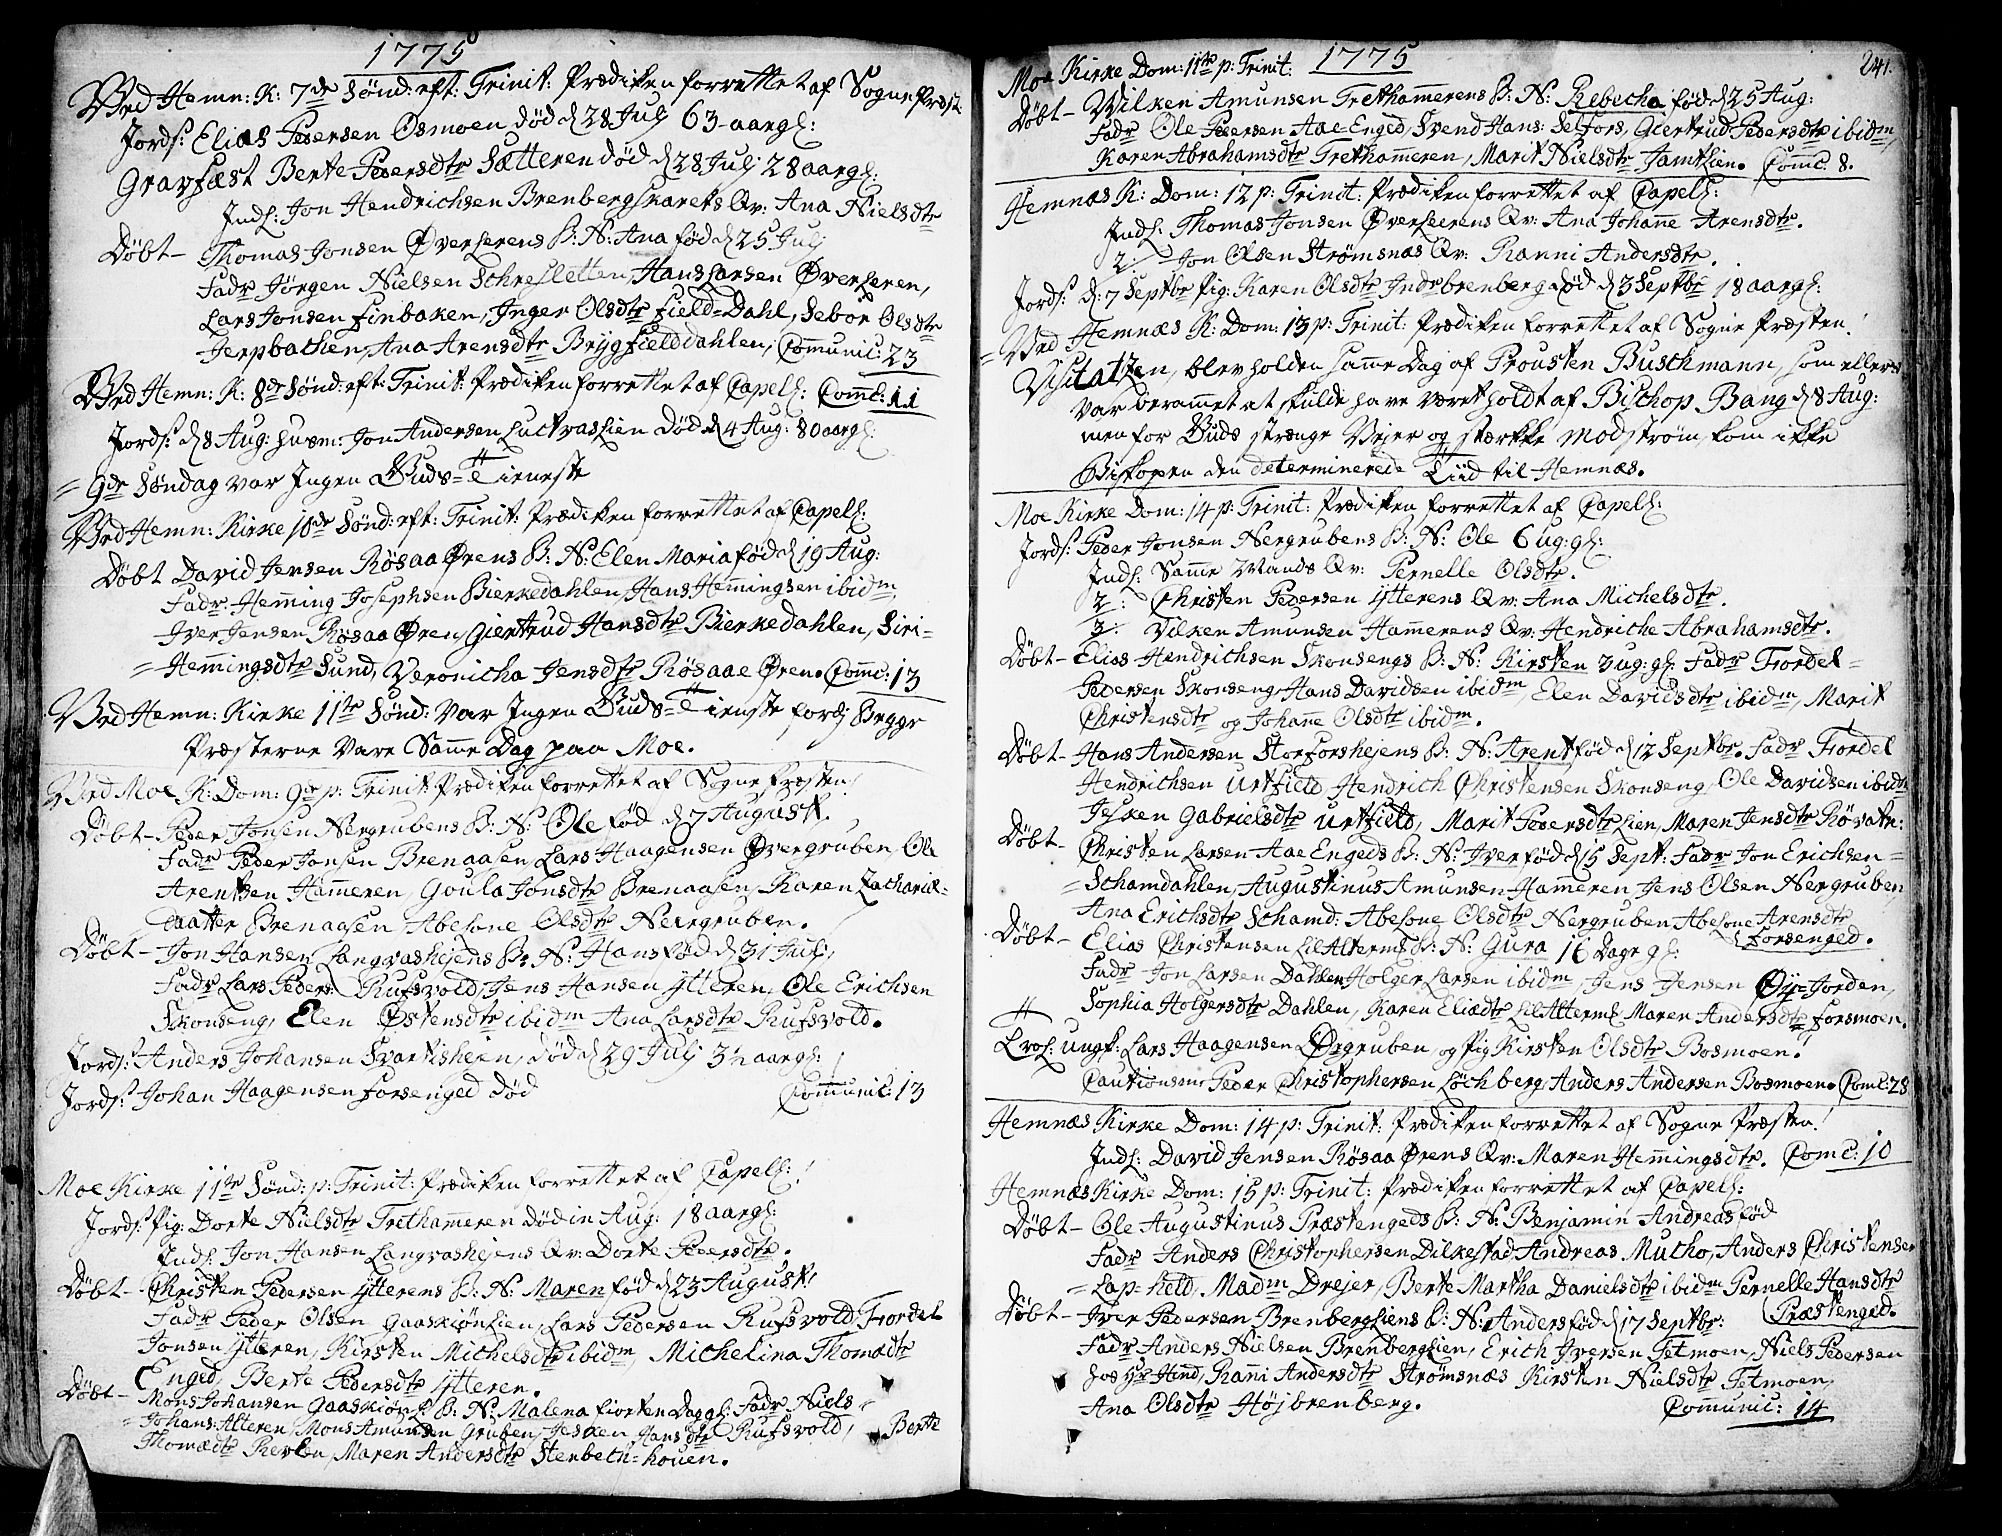 1775
Wed Hemn: K: 7de Sønd: eft: Trinit: Prædiken forrettet af Sogne Præst
Jords: Elias Pedersen Osmoen død d 28 Julj 63 aar gl:
Gravfæst Berte Pedersdtr Sætteren død d 28 Julj 28 aar gl:
Indl: Jon Hendrichsen Brenbergskarets Qv: Ana Nielsdtr
Døbt – Thomas Jonsen Øverlerens B: N: Ana fød d 25 Julj
Fadr Jørgen Nielsen Schresletten, Hans Larsen Øverleren,
Lars Jonsen Finbaken, Inger Olsdtr Field-Dahl, Sebor Olsdtr
Jerpbakken, Ana Arensdtr Brygfielddahlen, Communic: 23
Wed Hemn: K: 8de Sønd: eft: Trinit: Prædiken forrettet af Capell: Comc: 11
Jords: d 8 Aug: Husm: Jon Andersen Luctvaslien død d 4 Aug: 80 aar gl:
= 9de Søndag var Ingen Guds-Tieneste
Wed Hemn: Kirke 10de Sønd: eft: Trinit: Prædiken forrettet af Capell:
Døbt David Jensen Røsaa Ørens B: N: Elen Maria fød d 19 Aug:
Fadr: Heming Josephsen Bierkedahlen, Hans Hemingsen ibidm,
Iver Jensen Røsaa Øren, Giertrud Hansdtr Bierkedahlen, Siri-
= Hemingsdtr Sund, Veronicha Jensdtr Røsaae Øren. Comc: 13
Wed Hemn: Kirke 11te Sønd: Var Ingen Guds-Tieneste fordj Begge
Præsterne Vare Same Dag paa Moe.
Wed Moe K: Dom: 9de p: Trinit Prædiken forrettet af Sogne Præsten!
Døbt – Peder Jonsen Nergrubens B: N: Ole fød d 7 August.
Fadr Peder Jonsen Brenaasen, Lars Haagensen Øvergruben, Ole
Arentsen Hameren, Goula Jonsdtr Brenaasen, Karen Zachariæ-
Daatter Brenaasen Abelone Olsdtr Nergruben.
Døbt – Jon Hansen Langvashejens B: N: Hans fød d 31 Julj,
Fadr Lars Peders: Rufsvold, Jens Hansen Ytteren, Ole Erichsen
Skonseng, Elen Østensdtr ibidm Ana Larsdtr Rufsvold.
Jords: Anders Johansen Svartishein, død d 29 Julj 3½ aar gl:
Jords: Johan Haagensen Forsenged død Communic: 13
Moe Kirke 11te Sønd: p: Trinit: Prædiken forrettet af Capell:!
Jords: Pig: Dorte Nielsdtr Trethameren død in Aug: 18 aar gl:
Indl: Jon Hansen Langvashejens Qv: Dorte Pedersdtr.
Døbt – Christen Pedersen Ytterens B: N: Maren fød d 23 August!
Fadr Peder Olsen Gaaskiønlien, Lars Pedersen Rufsvold, Tordel
Jonsen Ytteren, Kirsten Michelsdtr ibidm, Michelina Thomædtr
Enged, Berte Pedersdtr Ytteren.
Døbt – Mons Johansen Gaaskiønl B: N: Malena fiorten Dag gl: Fadr Niels
= Johans: Alteren, Mons Amundsen Gruben, Jesken Hansdtr Rufsvold, Berte
Thomædtr Revlen, Maren Andersdtr Stenbech-houen.
1775 241.
Moe Kirke Dom: 11te p: Trinit:
Døbt – Wilken Amunsen Trethamerens B: N: Rebecha fød d 25 Aug:
Fadr Ole Pedersen Aae-Enged, Svend Hans: Selfors, Giertrud Pedersdtr ibidm,
Karen Abrahamsdtr Trethameren, Marit Nielsdtr Jamtlien. Comc: 8.
Hemnæs K: Dom: 12 p: Trinit: Prædiken forrettet af Capell:
Indl: Thomas Jonsen Øverleerens Qv: Ana Johane Arensdtr.
2: Jon Olsen Strømsnæs Qv: Ranni Andersdtr.
Jords: d: 7 Septbr Pig: Karen Olsdtr Indrebrenberg død d 3 Septbr 18 aar gl:
= Wed Hemnæs K: Dom: 13 p: Trinit: Prædiken forrettet af Sogne Præsten!
Visitatzen, blev holden same Dag af Prousten Buschmann, som ellers
var beramet at skulde have været holdt af Bischop Bang d 8 Aug:
men for Guds strænge Vejer og stærke modstrøm, kom ikke
Biskopen den determinerede Tiid til Hemnæs.
Moe Kirke Dom: 14 p: Trinit: Prædiken forrettet af Capell:
Jords: Peder Jonsen Nergrubens B: N: Ole 6 ug: gl:
Indl: Same Mands Qv: Pernelle Olsdtr.
2: Christen Pedersen Ytterens Qv: Ana Michelsdtr.
3: Vilken Amunsen Hamerens Qv: Hendriche Abrahamsdtr.
Døbt – Elias Hendrichsen Skonsengs B: N: Kirsten 3 ug: gl: Fadr Tordel=
Pedersen Skonseng, Hans Davidsen ibidm, Elen Davidsdtr ibidm, Marit
Christensdtr og Johane Olsdtr ibidm.
Døbt – Hans Andersen Storforshejens B: N: Arent fød d 12 Septbr. Fadr Tordel
Hendrichsen Urtfield, Hendrich Christensen Skonseng, Ole Davidsen ibidm
Jesken Gabrielsdtr Urtfield, Marit Pedersdtr Lien, Maren Jensdtr Røvatn:
Døbt – Christen Larsen Aae Engeds B: N: Iver fød d 15 Sept: Fadr Jon Erichsen=
= Schamdahlen, Augustinus Amunsen Hameren Jens Olsen Nergruben,
Ana Erichsdtr Schamd: Abelone Olsdtr Nergruben Abelone Arensdtr
Forsenged.
Døbt – Elias Christensen Lil Alterens B: N: Gura 16 Dage gl:
Fadr Jon Larsen Dahlen, Holger Larsen ibidm, Jens Jensen Øye-Jorden,
Sophia Holgersdtr Dahlen, Karen Eliædtr Lil Alterns Maren Andersdtr Forsmoen.
Trol: ungk: Lars Haagensen Ørgruben, og Pig Kirsten Olsdtr Bosmoen!
Cautionsm: Peder Christophersen Lochberg, Anders Andersen Bosmoen. Comc: 28
Hemnæs Kirke Dom: 14 p: Trinit: Prædiken forrettet af Sogne Præsten!
Indl: David Jensen Røsaa Ørens Qv: Maren Hemingsdtr. Comc: 10
Hemnæs Kirke Dom: 15 p: Trinit: Prædiken forrettet af Capell:
Døbt – Ole Augustinus Præstengeds B: N: Benjamin Andreas fød
Fadr Anders Christophersen Dilkestad Andreas Mutho, Anders Christensen
= Lap-held, Madm Drejer, Berte Martha Danielsdtr ibidm Pernelle Hansdtr
Præstenged.
Døbt – Iver Pedersen Brenbergliens B: N: Anders fød d 17 Septbr:
Fadr Anders Nielsen Brenberglien, Erich Iversen Tetmoen, Niels Pedersen
hos Hr Hend, Rani Andersdtr Strømsnæs Kirsten Nielsdtr Tetmoen,
Ana Olsdtr Højbrenberg. Communic: 14